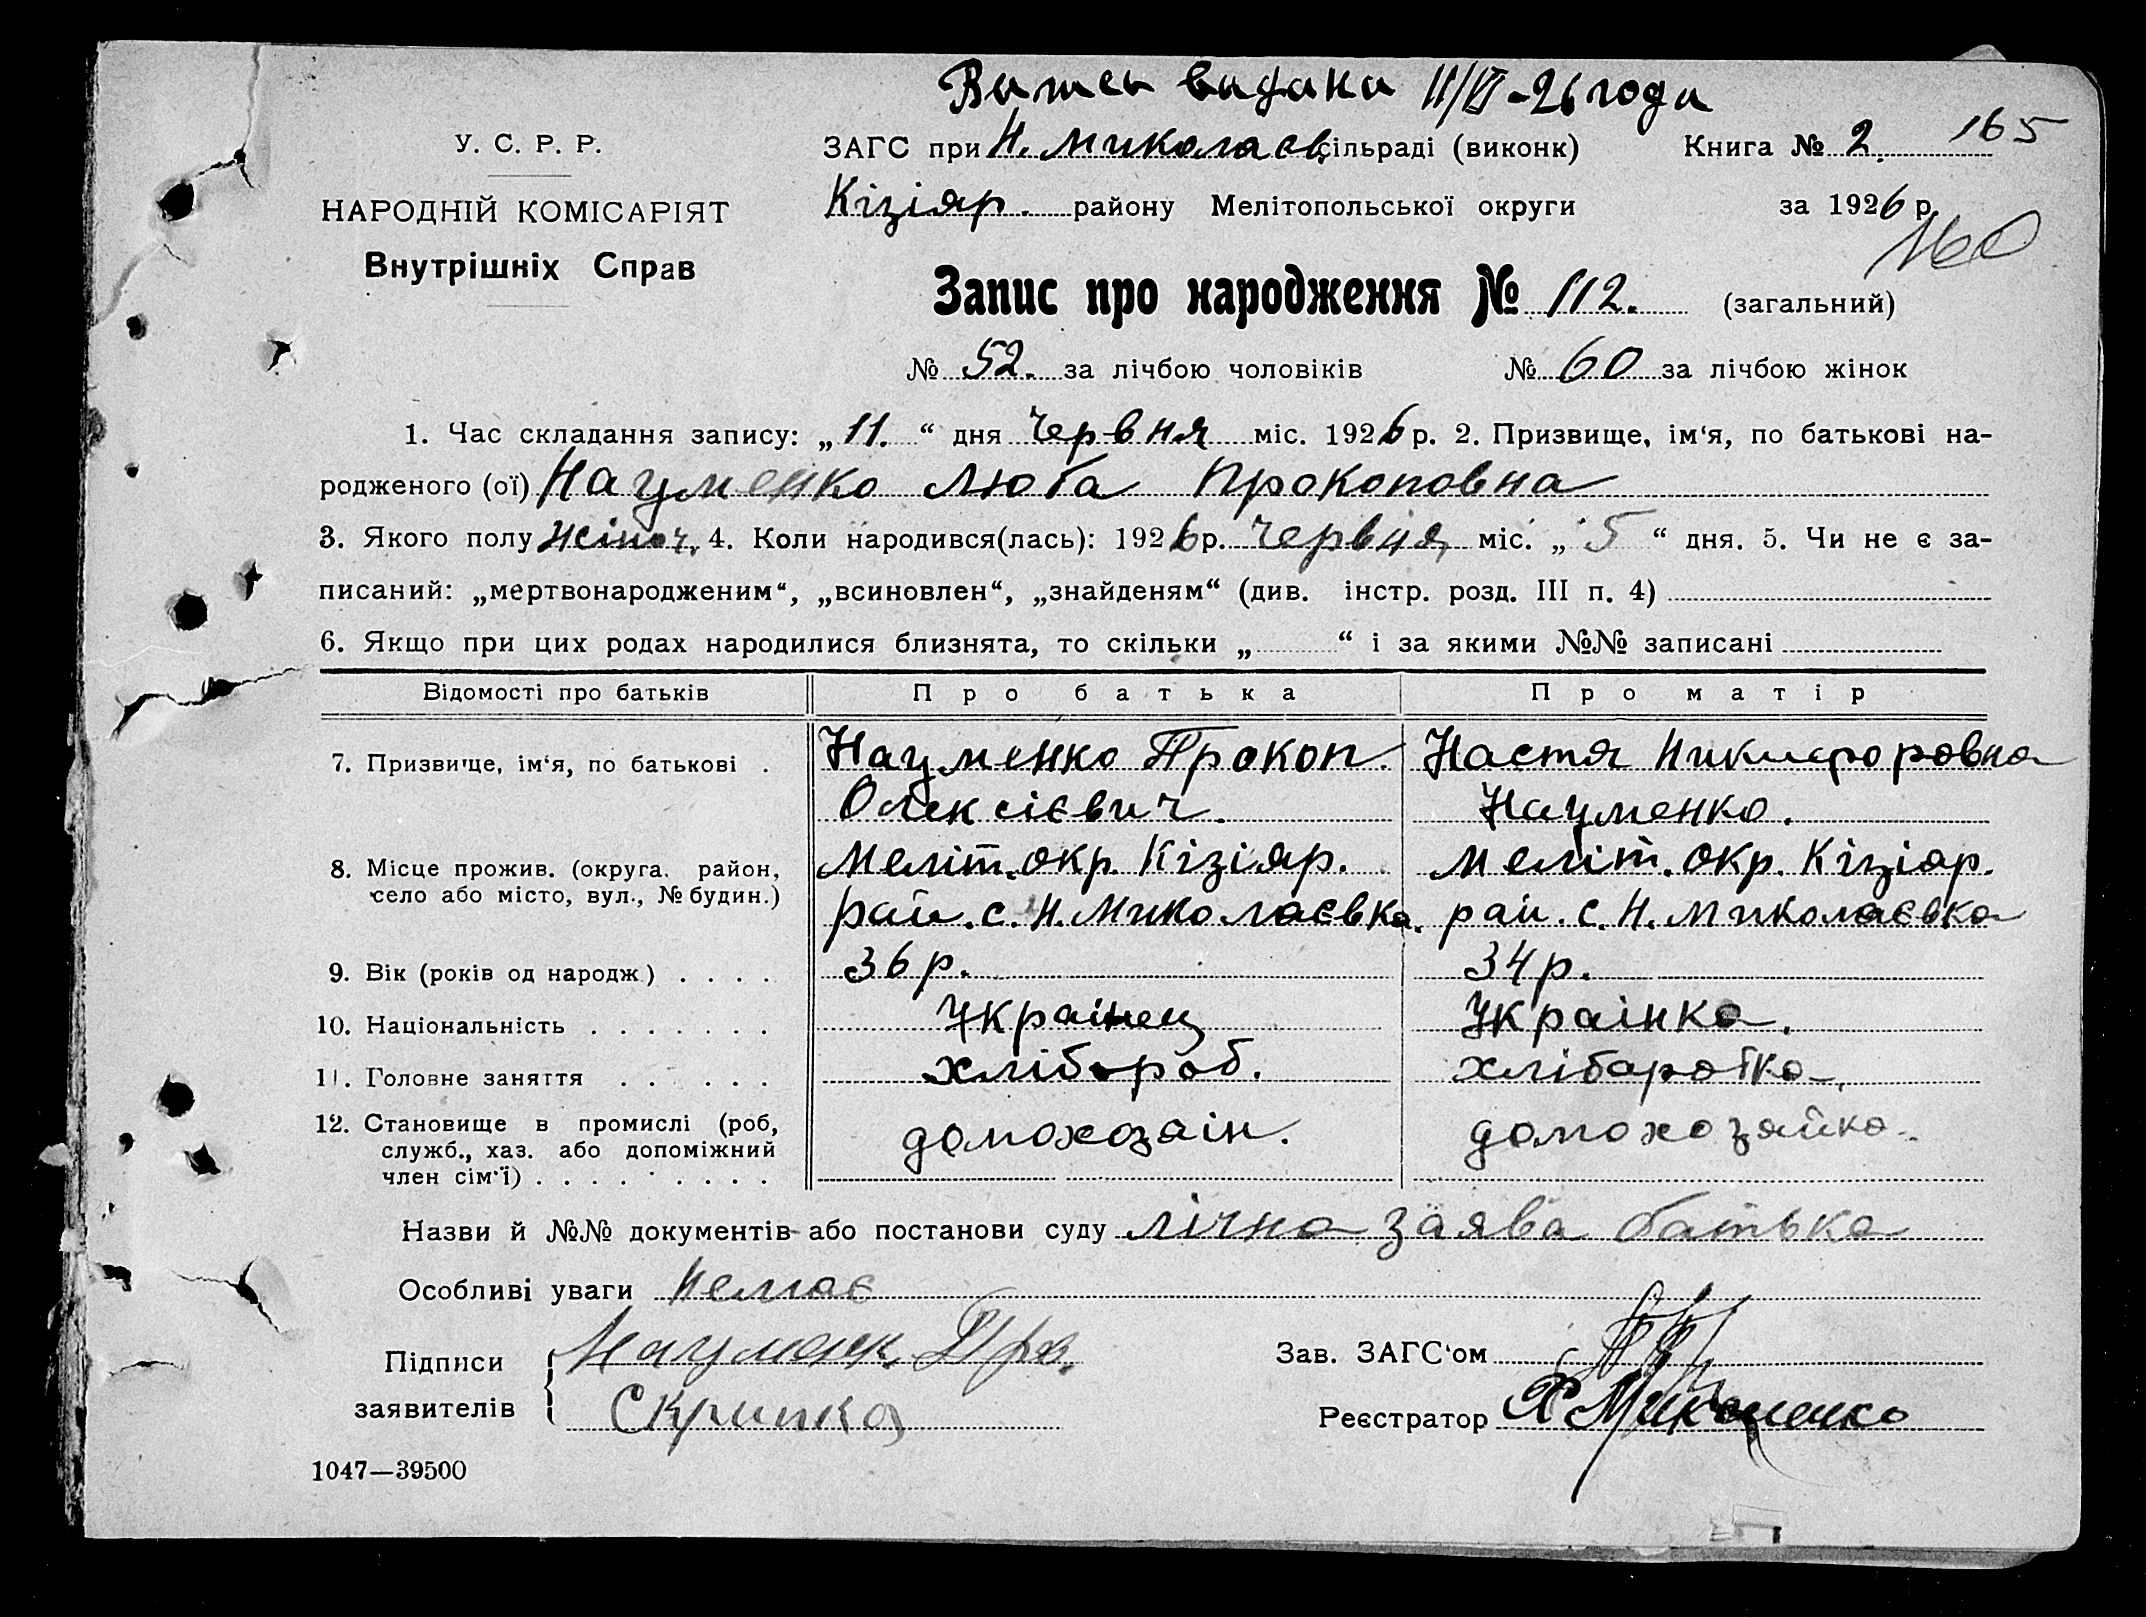 Випись видана 11/VI-26 года
У. С. Р. Р.
ЗАГС при Н. Миколаєв. сільраді (виконк) Книга № 2. 165
НАРОДНІЙ КОМІСАРІЯТ
Кізіяр. району Мелітопольської округи за 1926 р.
160
Внутрішніх Справ
Запис про народження № 112. (загальний)
№ 52. за лічбою чоловіків № 60 за лічбою жінок
1. Час складання запису: „ 11. “ дня Червня міс. 1926 р. 2. Призвище, ім‘я, по батькові на-
родженого (ої) Науменко Люба Прокоповна
3. Якого полу жіноч. 4. Коли народився(лась): 1926 р. Червня, міс. „ 5 “ дня. 5. Чи не є за-
писаний: „мертвонародженим“, „всиновлен“, „знайденям“ (див. інстр. розд. III п. 4)
6. Якщо при цих родах народилися близнята, то скільки „ “ і за якими №№ записані
Відомості про батьків Про батька Про матір
7. Призвище, ім‘я, по батькові . Науменко Прокоп Настя Никифоровна
Олексієвич. Науменко.
8. Місце прожив. (округа, район, Меліт. окр. Кізіяр. Меліт. окр. Кізіяр.
село або місто, вул., № будин.) рай. с. Н. Миколаєвка. рай. с. Н. Миколаєвка
9. Вік (років од народж.) . . . . 36 р. 34 р.
10. Національність . . . . . . . Украінец Украінка.
11. Головне заняття . . . . . . хлібороб. хлібаробка.
12. Становище в промислі (роб,
служб., хаз. або допоміжний домохозаін. домохозяйка.
член сім‘ї) . . . . . . . . .
Назви й №№ документів або постанови суду лічна заява батька
Особливі уваги немає
Підписи Науменк. Про.
Зав. ЗАГС‘ом
заявителів Скрипка
Реєстратор
1047—39500